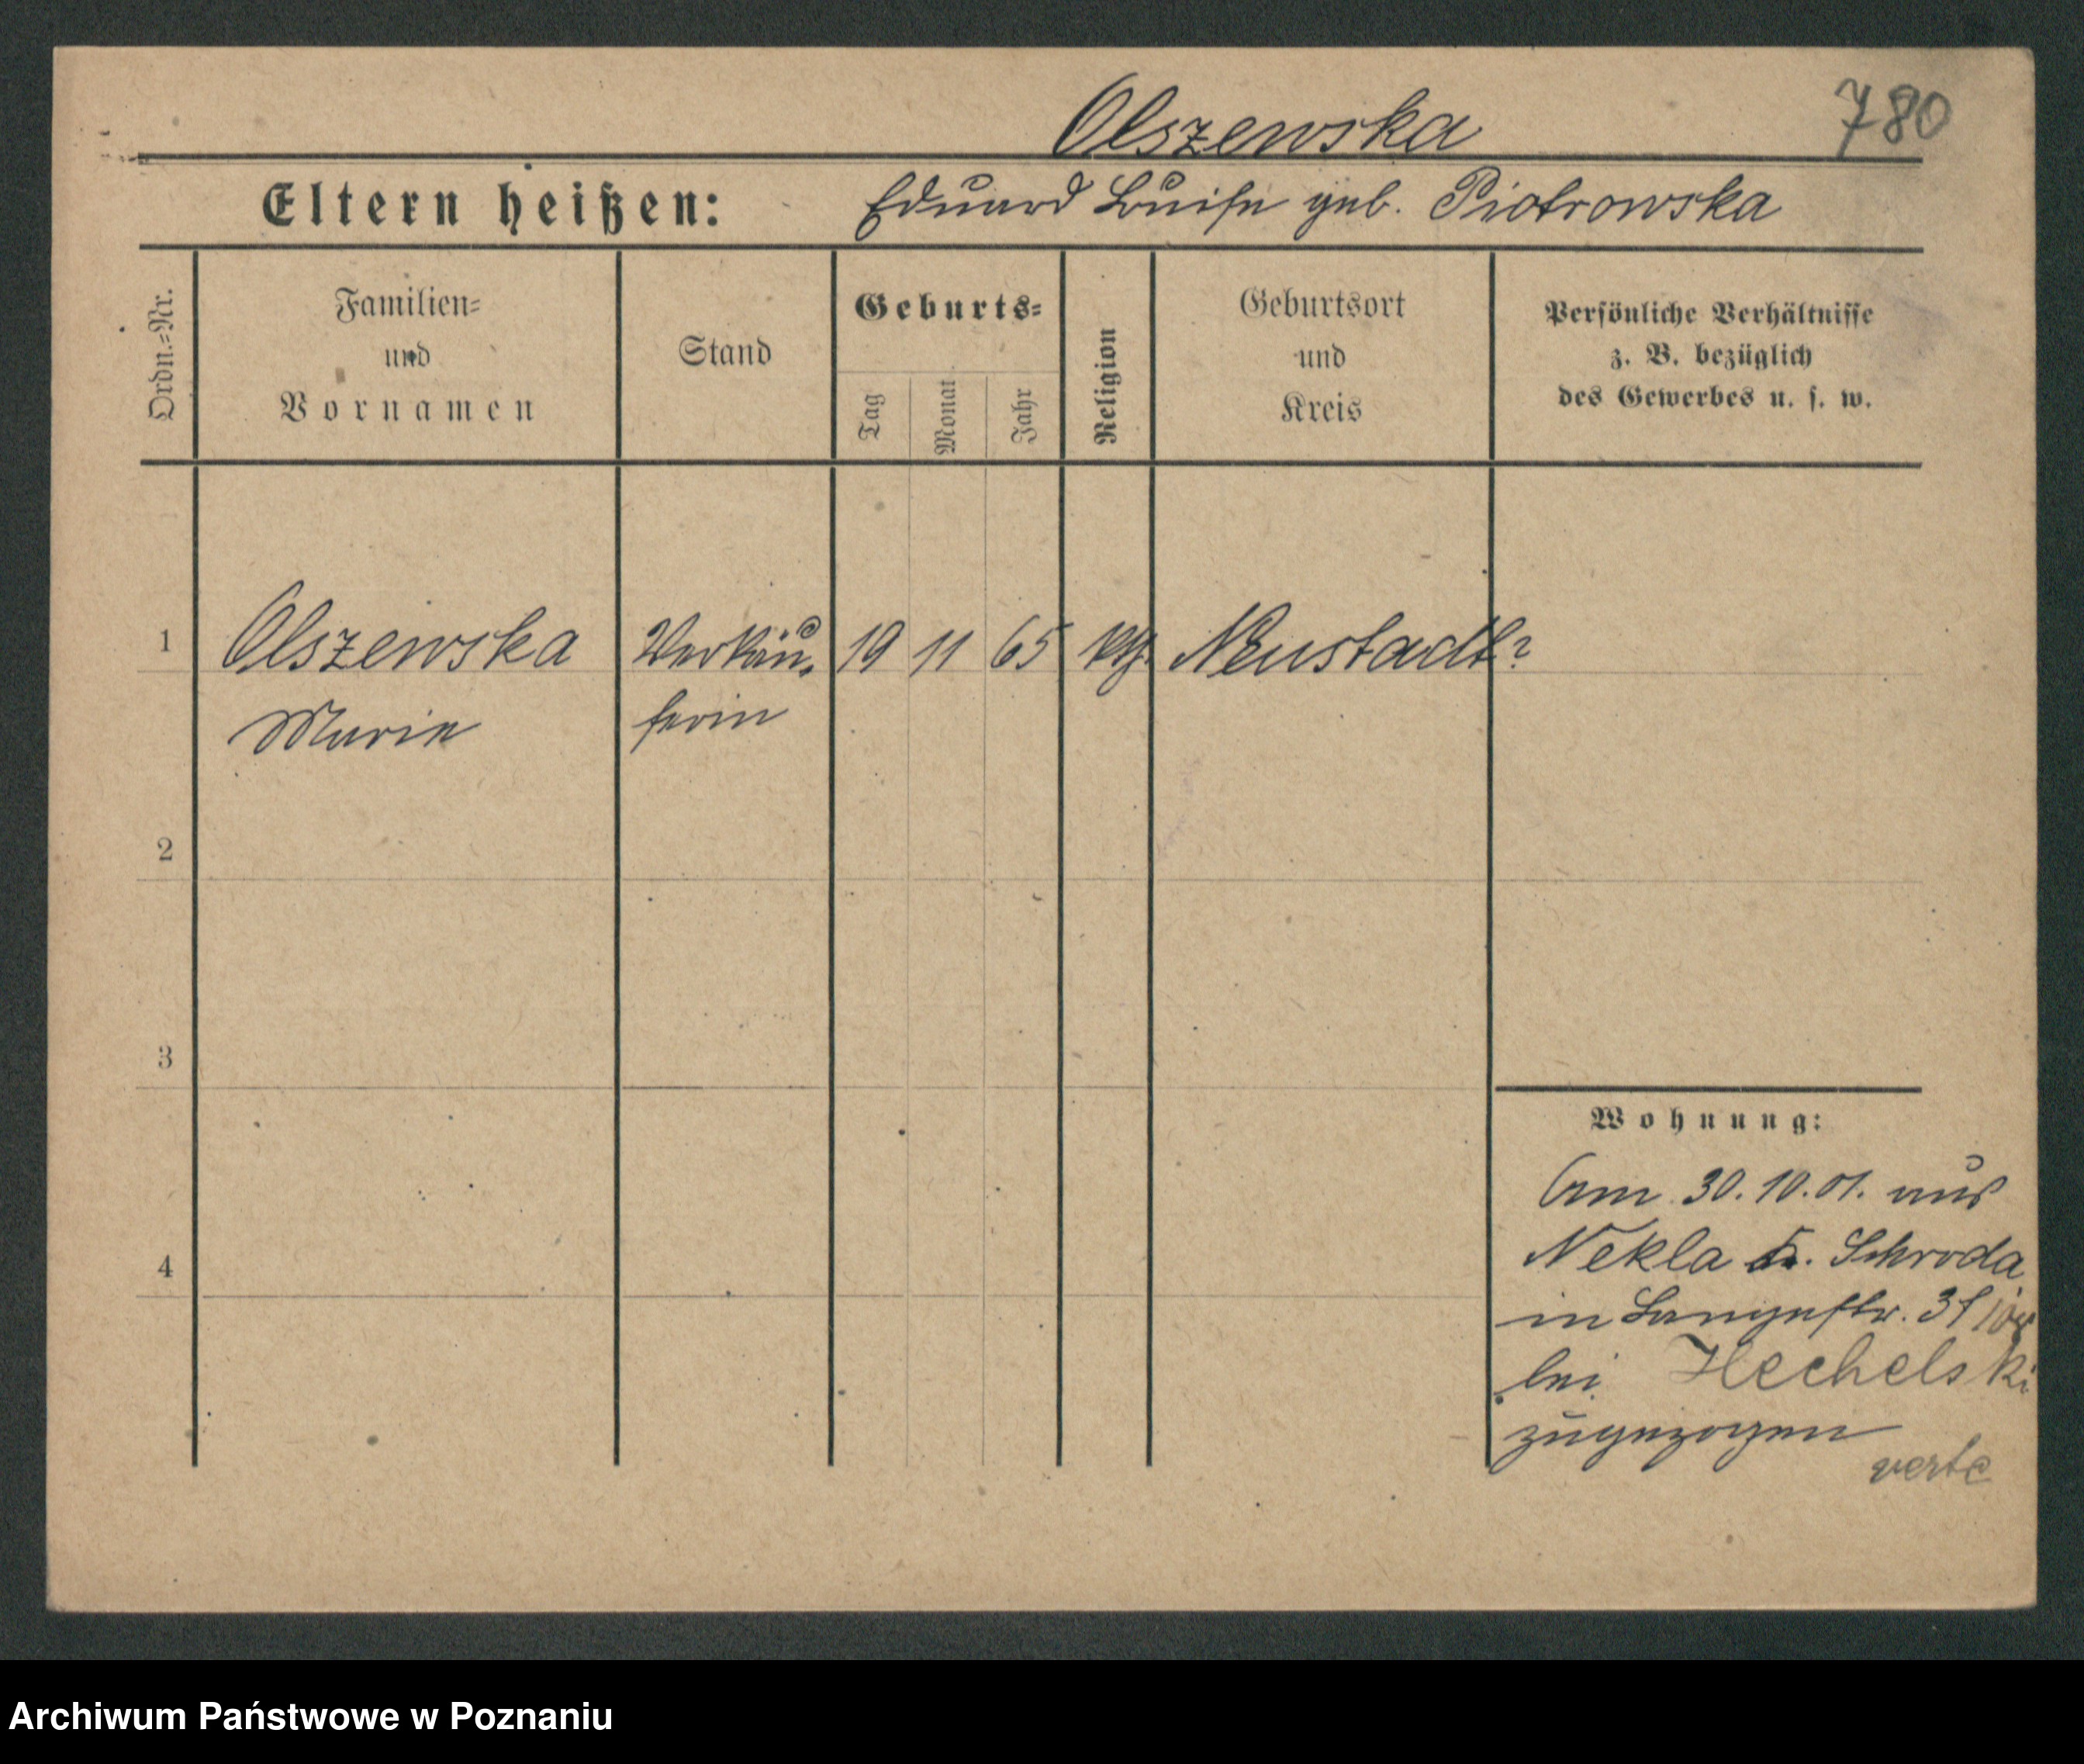 Olszewska 780
Eltern heißen: Eduard Luise geb. Piotrowska
Ordn.-Nr.
Familien-
und
Vornamen
Stand
Geburts-
Tag
Monat
Jahr
Religion
Geburtsort
und
Kreis
Persönliche Verhältnisse
z. B. bezüglich
des Gewerbes u. s. w.
1 Olszewska Verkäu- 19 11 65 kth. Neustadt?
Marie ferin
2
3
4
Wohnung:
Am 30.10.01. aus
Nekla Schroda
in Langestr. 31
bei Hechelski
zugezogen
verte
Archiwum Państwowe w Poznaniu